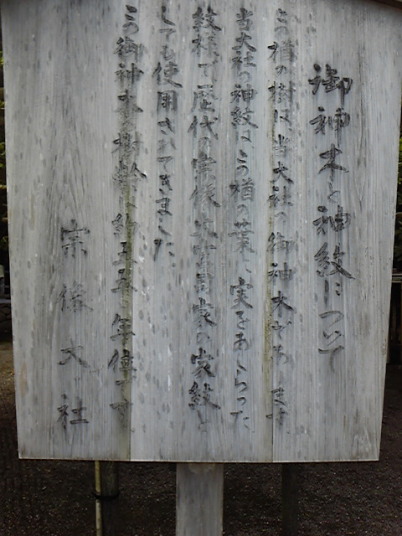 御神木と神紋について
この楢の樹は、当大社の御神木であります
当大社の神紋はこの楢の葉に、実をあしらった
紋様で歴代の宗像大宮司家の家紋と
しても使用されてきました
この御神木の樹齢は約五五〇年位です
宗像大社